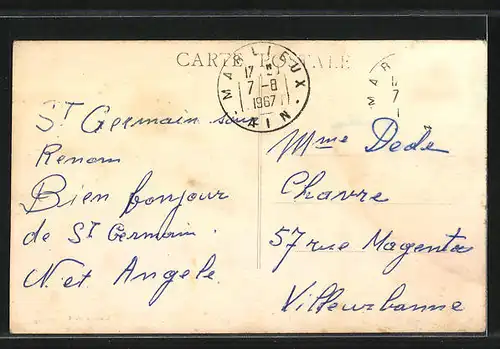 CARTE POSTALE
MARLIEUX
17 H
7-8
1967
AIN
MAR
17
7
St Germain sur
Renom
Bien bonjour
de St Germain.
N et Angele
Mme Dedé
Chavre
57 rue Magenta
Villeurbanne